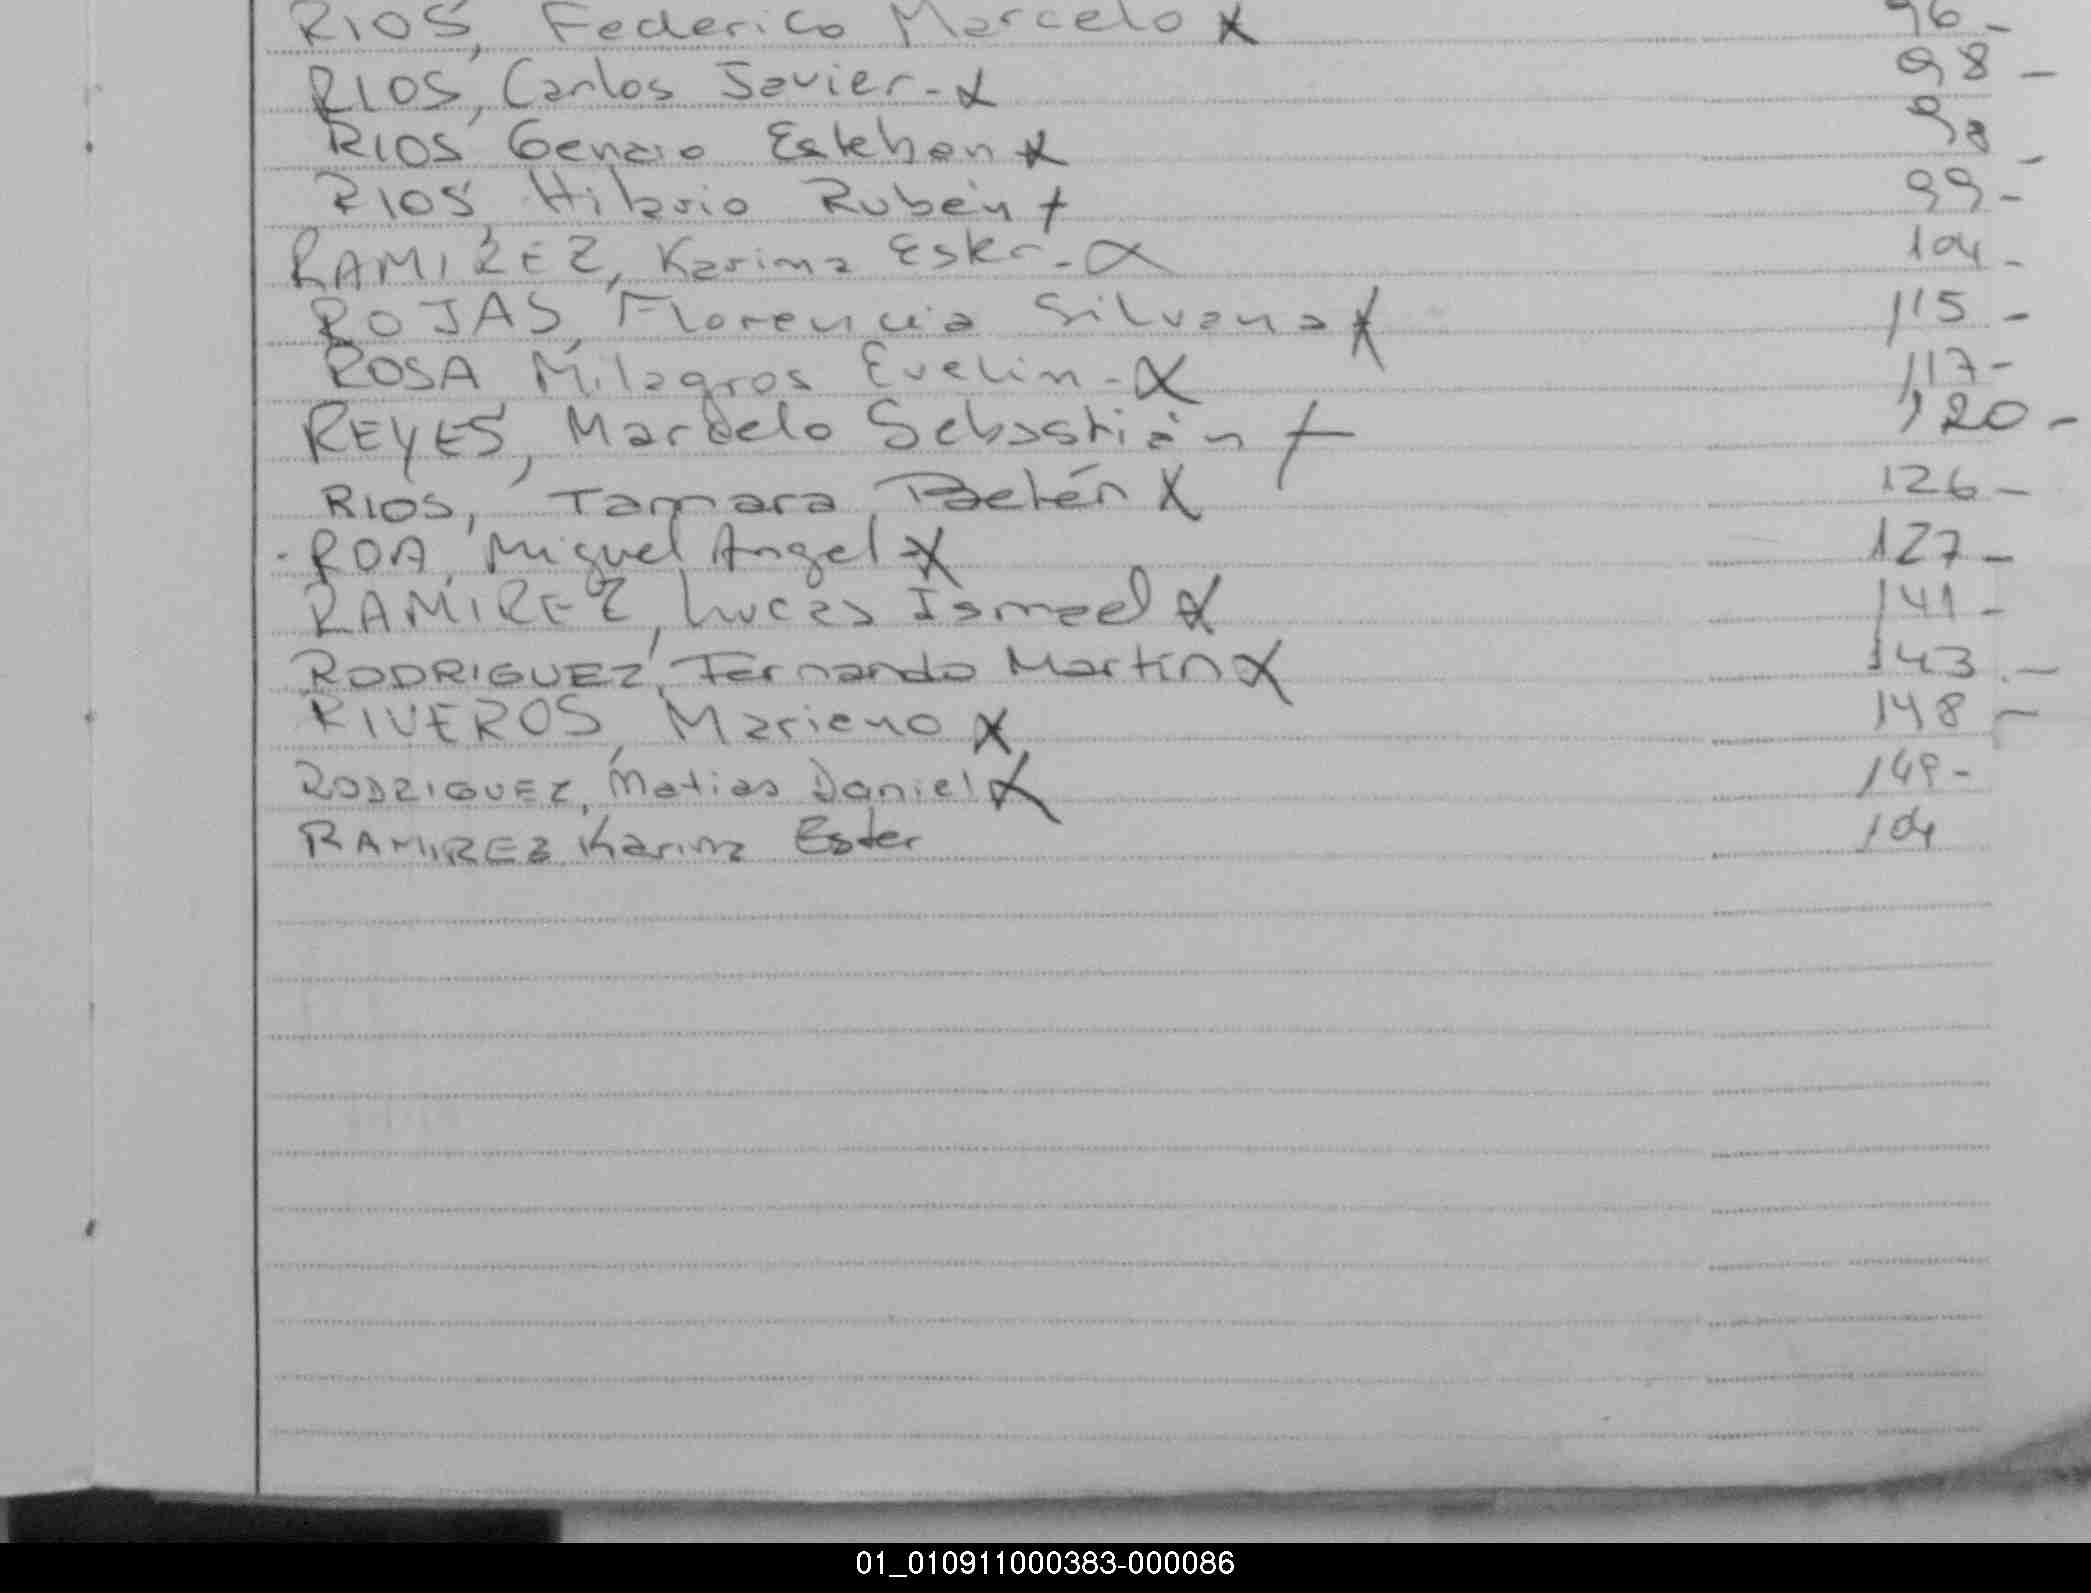 RIOS, Federico Marcelo x 96 -
RIOS, Carlos Javier - x 98 -
RIOS Genaro Esteban x 98 -
RIOS, Hilario Rubén x 99 -
RAMIREZ, Karina Ester - x 104 -
ROJAS, Florencia Silvana x 115 -
ROSA Milagros Evelin - x 117 -
REYES, Marcelo Sebastián x 120 -
RIOS, Tamara Belén x 126 -
ROA, Miguel Angel x 127 -
RAMIREZ, Lucas Ismael x 141 -
RODRIGUEZ, Fernando Martín x 143 -
RIVEROS, Mariano x 148 -
RODRIGUEZ, Matias Daniel x 149 -
RAMIREZ Karina Ester 104
01_010911000383-000086